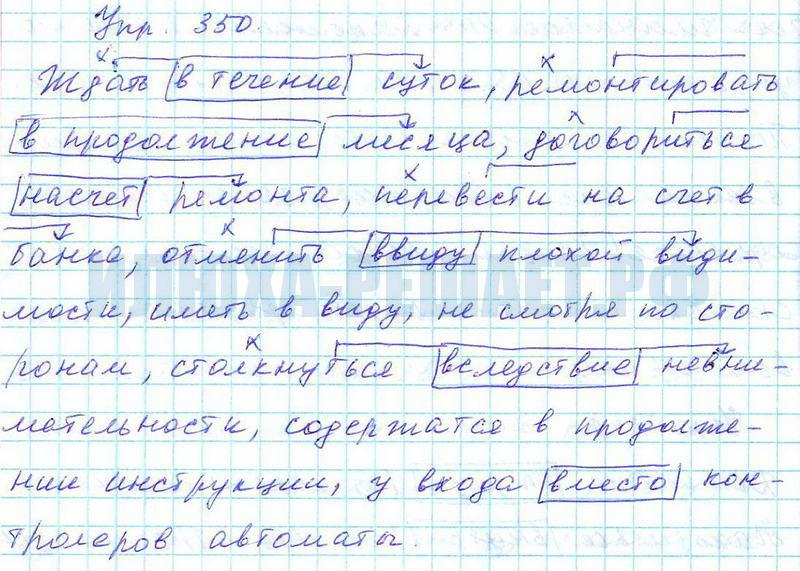 Упр. 350.
Ждать в течение суток, ремонтировать
в продолжение месяца, договориться
насчет ремонта, перевести на счет в
банке, отменить ввиду плохой види-
мости, иметь в виду, не смотря по сто-
ронам, столкнуться вследствие невни-
мательности, содержатся в продолже-
нии инструкции, у входа вместо кон-
тролеров автоматы.
ИЛЮХА-РЕШАЕТ.РФ